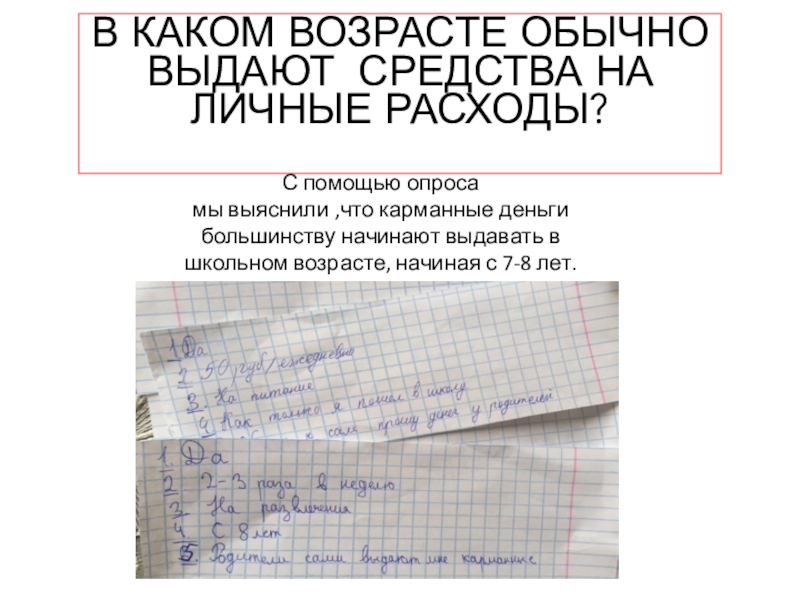 В КАКОМ ВОЗРАСТЕ ОБЫЧНО
ВЫДАЮТ СРЕДСТВА НА
ЛИЧНЫЕ РАСХОДЫ?
С помощью опроса
мы выяснили ,что карманные деньги
большинству начинают выдавать в
школьном возрасте, начиная с 7-8 лет.
1 Да
2 50 руб/ежедневно
3. На питание
4 Как только я пошел в школу
сам прошу денег у родителей
1. Да
2 2-3 раза в неделю
3 На развлечения
4. С 8 лет
5. Родители сами выдают мне карманные